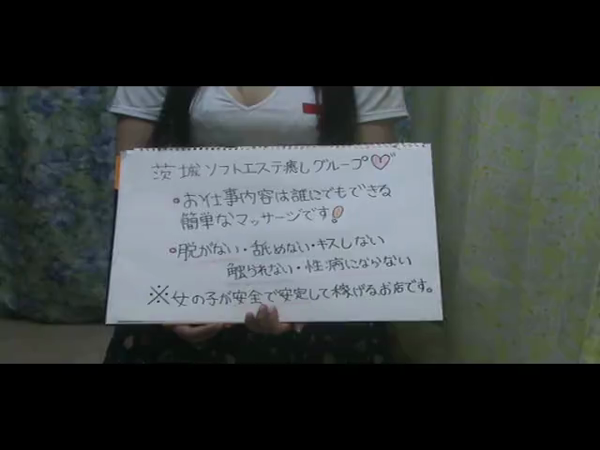 茨城ソフトエステ癒しグループ♡
•お仕事内容は誰にでもできる
簡単なマッサージです!
•脱がない・舐めない・キスしない
触られない・性病にならない
※女の子が安全で安定して稼げるお店です。